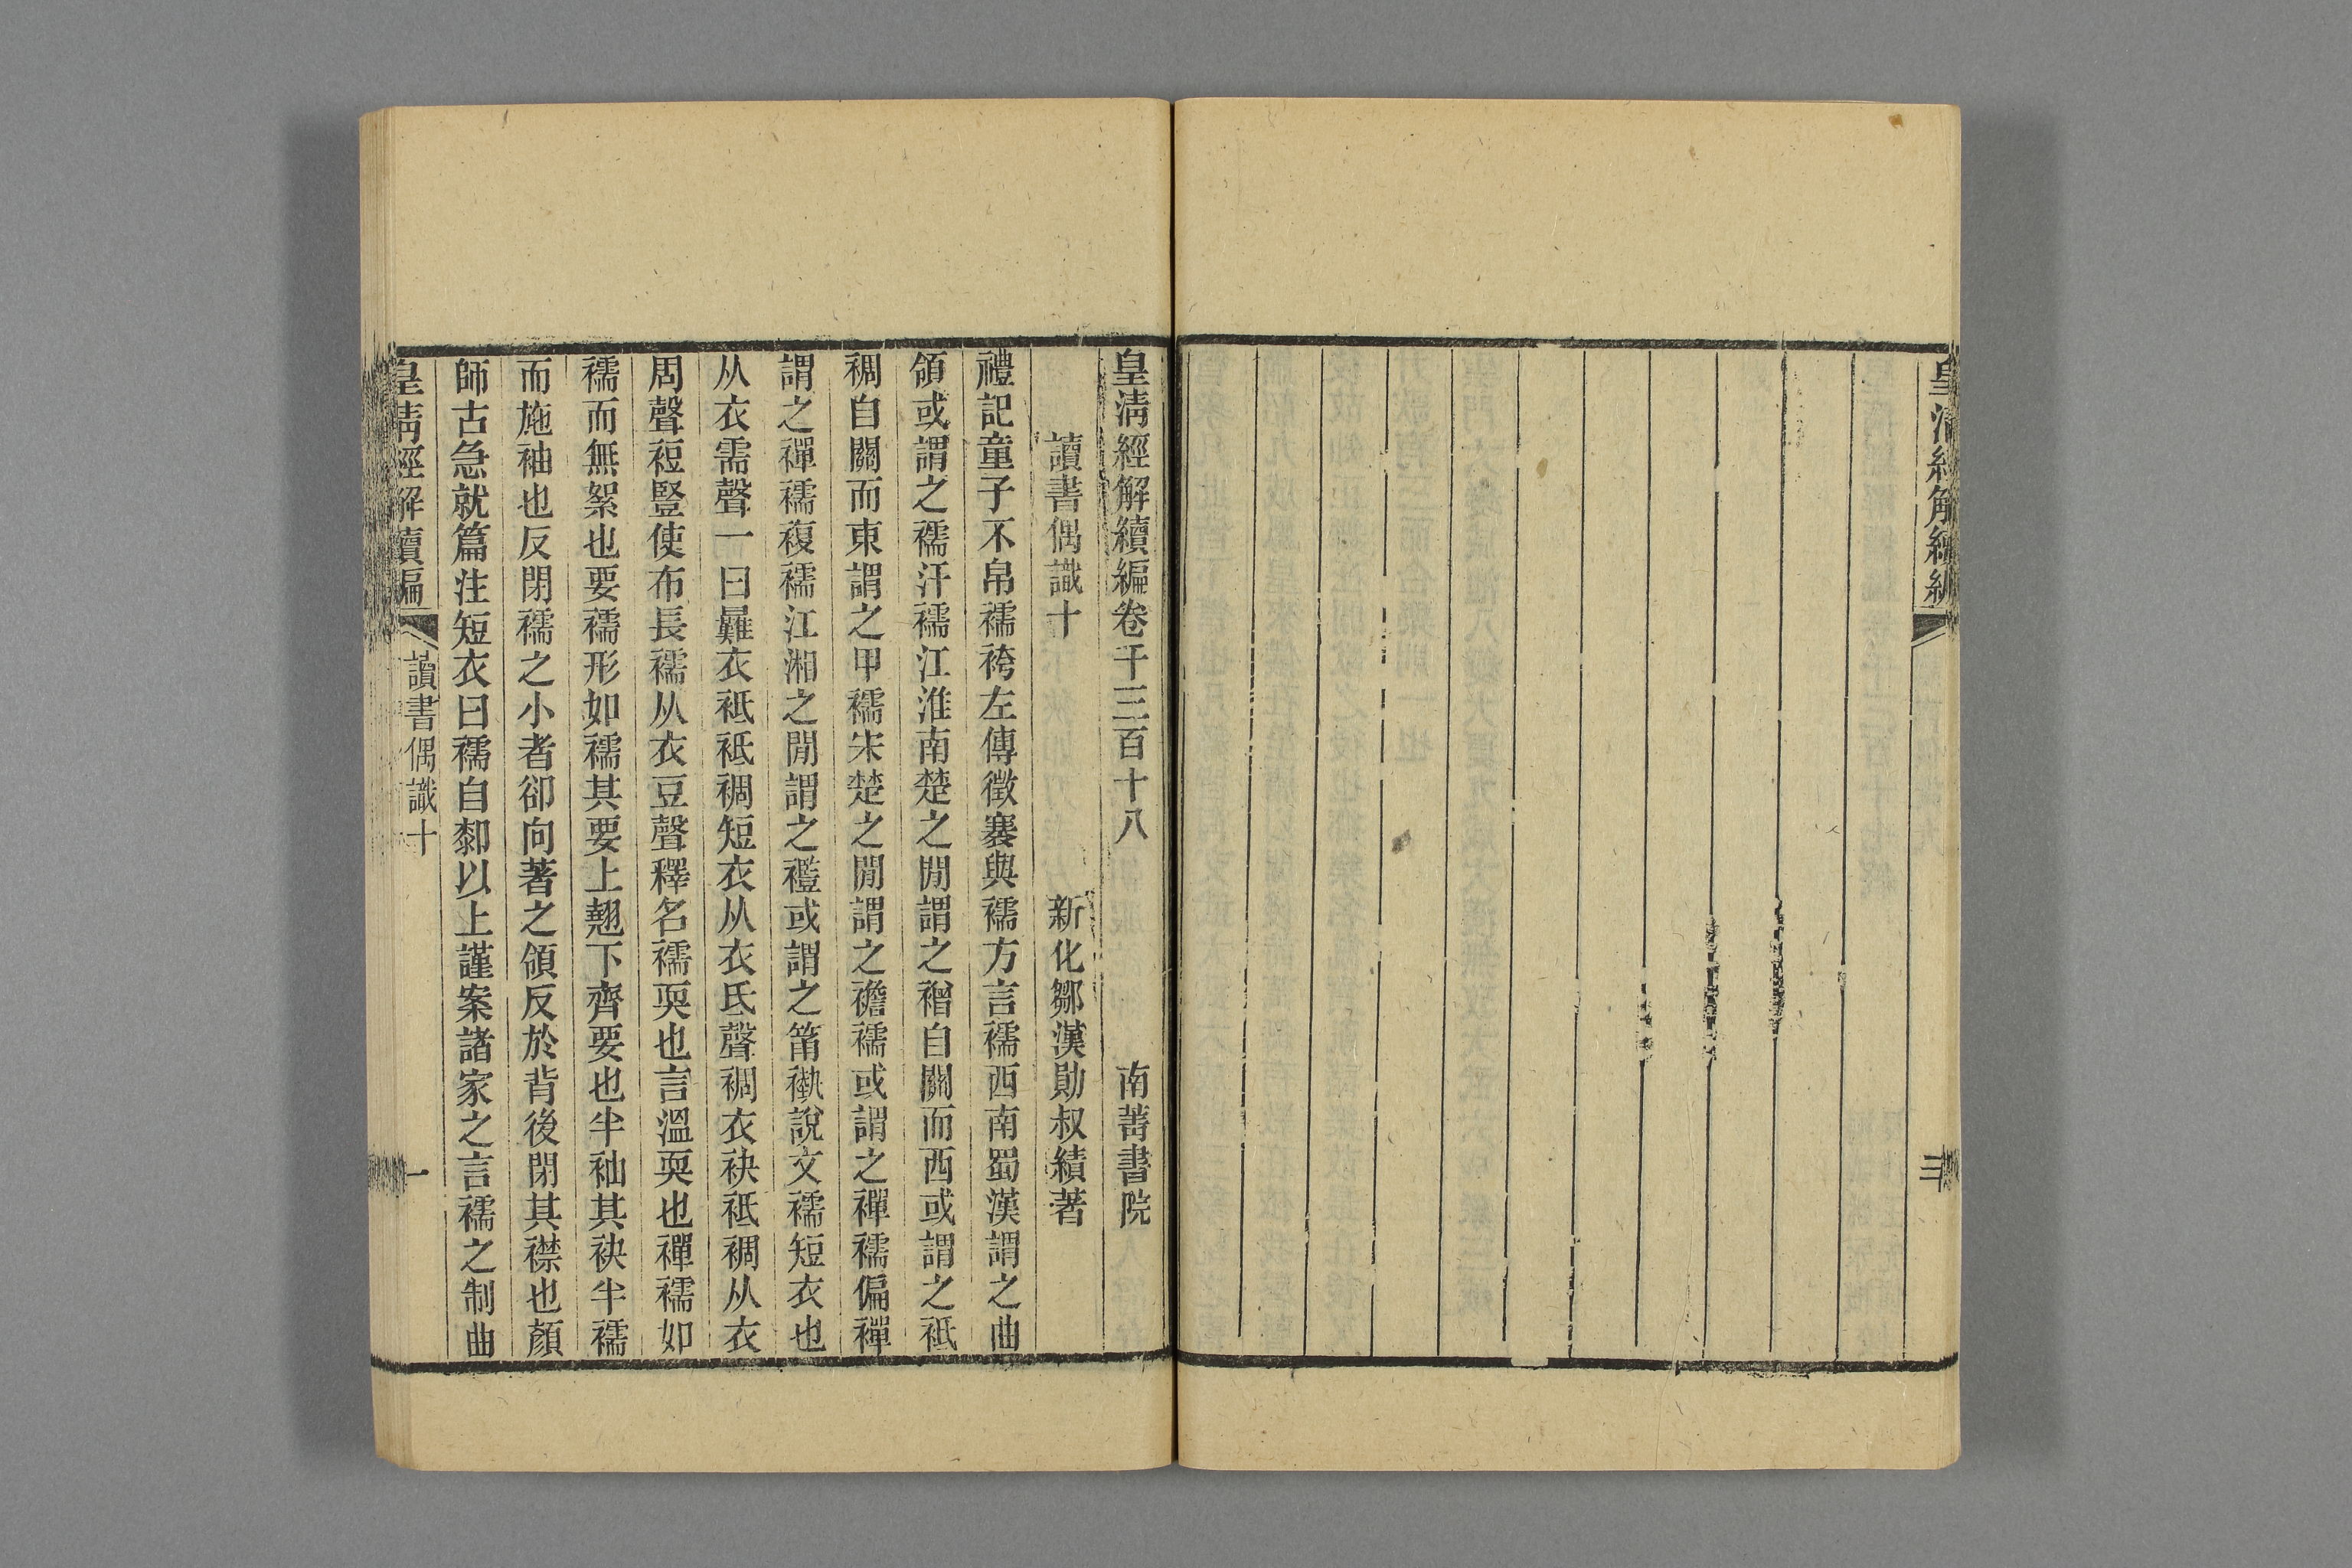 皇清經解續編
三
皇清經解續編卷千三百十八 南菁書院
讀書偶識十 新化鄒漢勛叔績著
禮記童子不帛襦袴左傳徵褰與襦方言襦西南蜀漢謂之曲
領或謂之襦汗襦江淮南楚之閒謂之䙢自關而西或謂之袛
裯自關而東謂之甲襦宋楚之閒謂之襜襦或謂之襌襦偏襌
謂之襌襦複襦江湘之閒謂之𧝎或謂之筩褹說文襦短衣也
从衣需聲一曰㬮衣袛袛裯短衣从衣氐聲裯衣袂袛裯从衣
周聲裋豎使布長襦从衣豆聲釋名襦耎也言溫耎也襌襦如
襦而無絮也要襦形如襦其要上翹下齊要也半袖其袂半襦
而施袖也反閉襦之小者卻向著之領反於背後閉其襟也顏
師古急就篇注短衣曰襦自厀以上謹案諸家之言襦之制曲
皇清經解續編 讀書偶識十 一